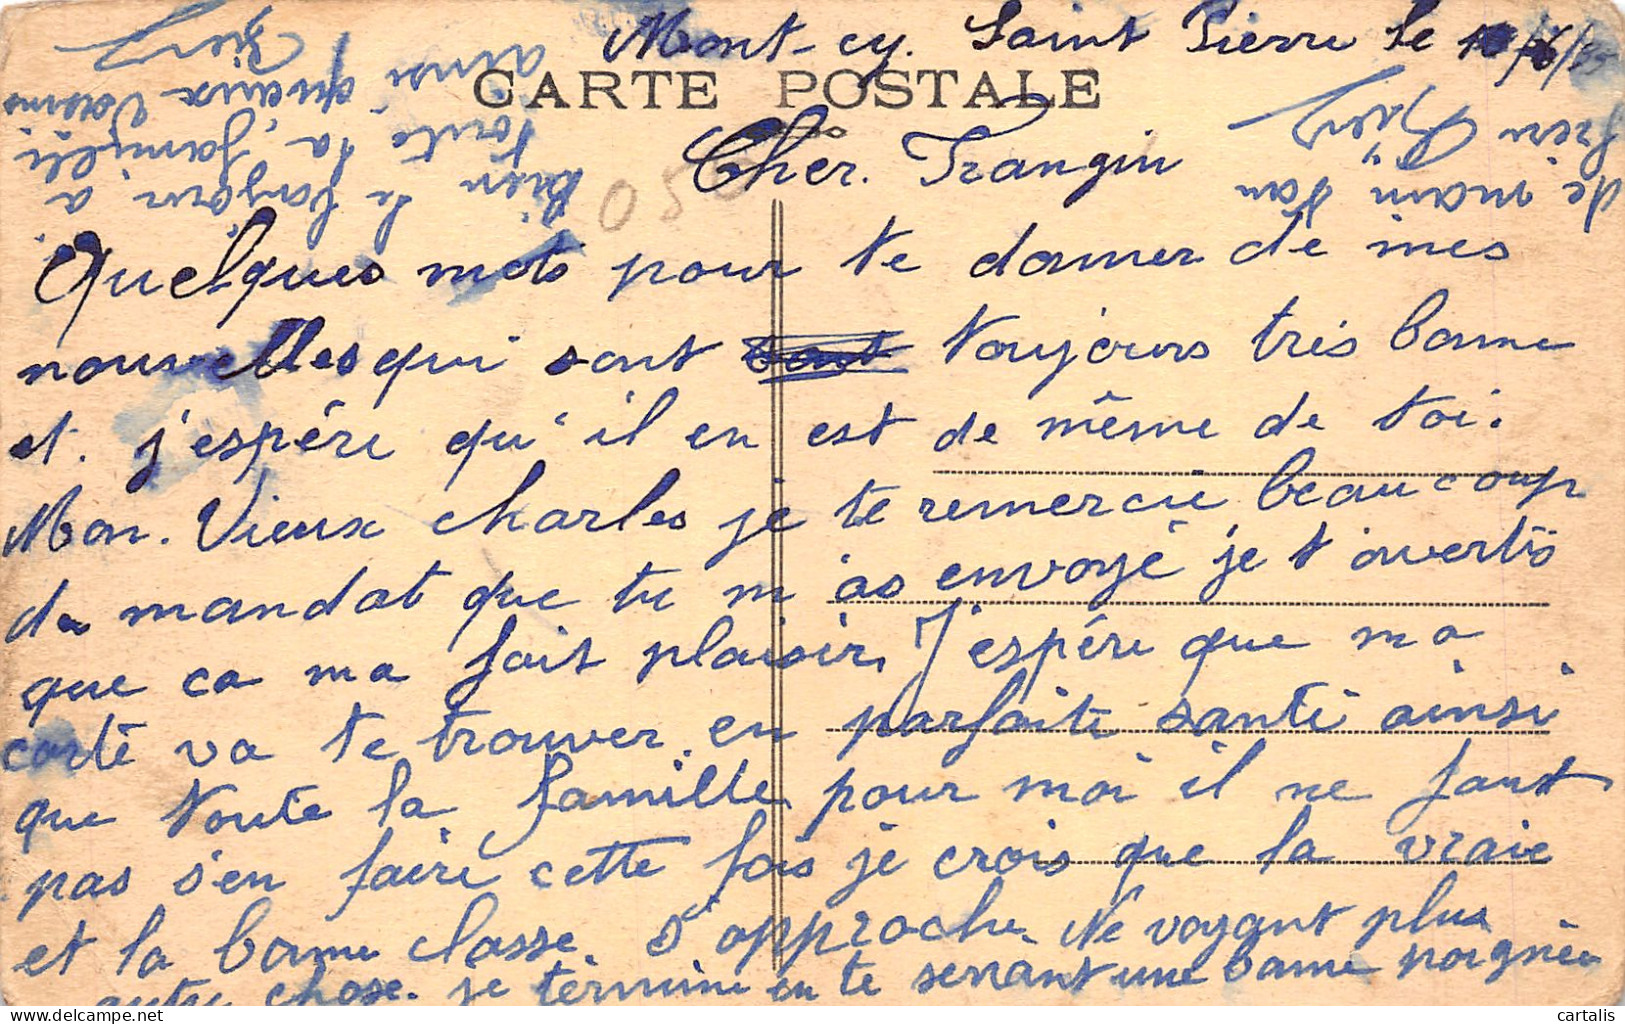 Mont-cy. Saint Pierre le
CARTE POSTALE
Cher. Trangin
Quelques mots pour te donner de mes
nouvelles qui sont toujours très bonne
et. j'espère qu'il en est de même de toi.
Mon. Vieux charles je te remercie beaucoup
du mandat que tu m'as envoyé je t'avertis
que ca ma fait plaisir, J'espère que ma
carte va te trouver. en parfaite santé ainsi
que toute la famille pour moi il ne faut
pas s'en faire cette fois je crois que la vraie
et la bonne classe. s'approche. Ne voyant plus
autre chose. je termine en te serrant une bonne poignée
de main ton
bien le bonjour a
toute la famille.
ainsi qu'aux voisins
050
cartalis
cartalis.com